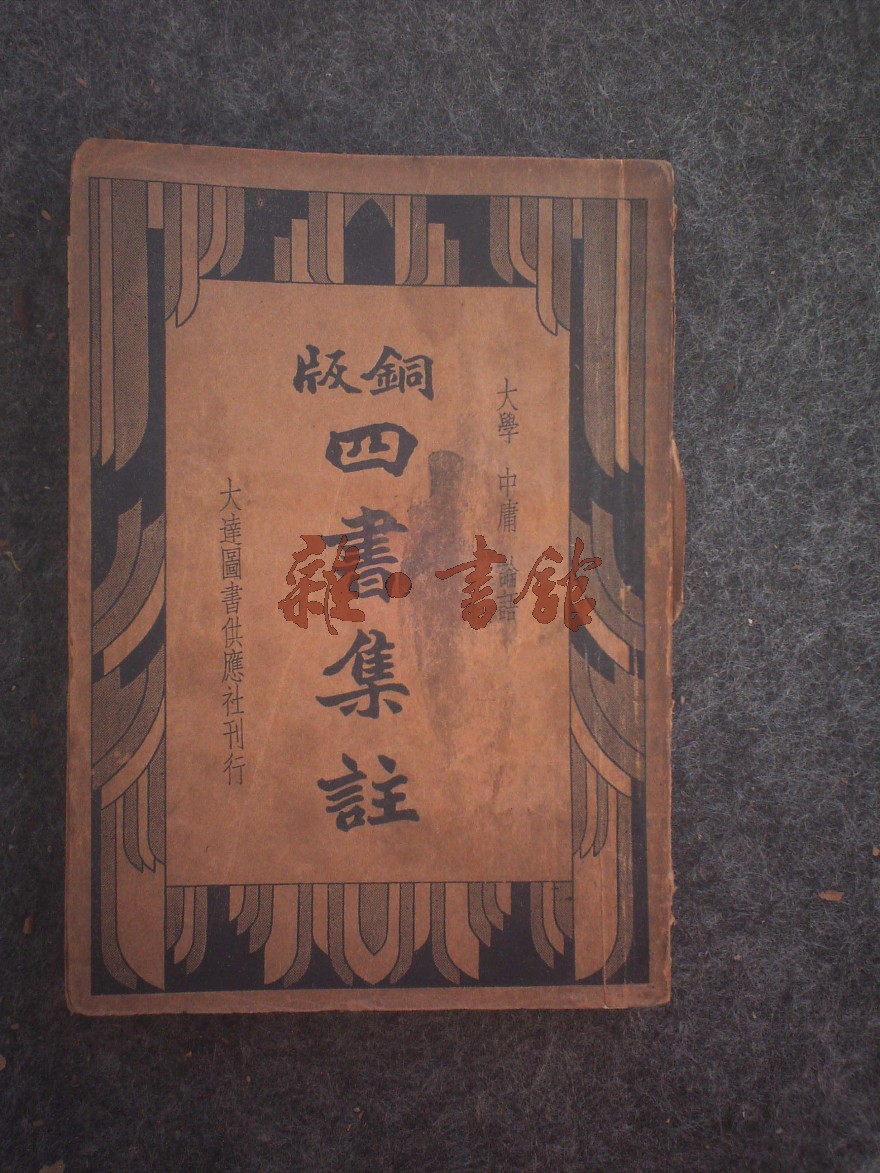 銅版
四書集註
大學 中庸 論語
大達圖書供應社刊行
雜·書館